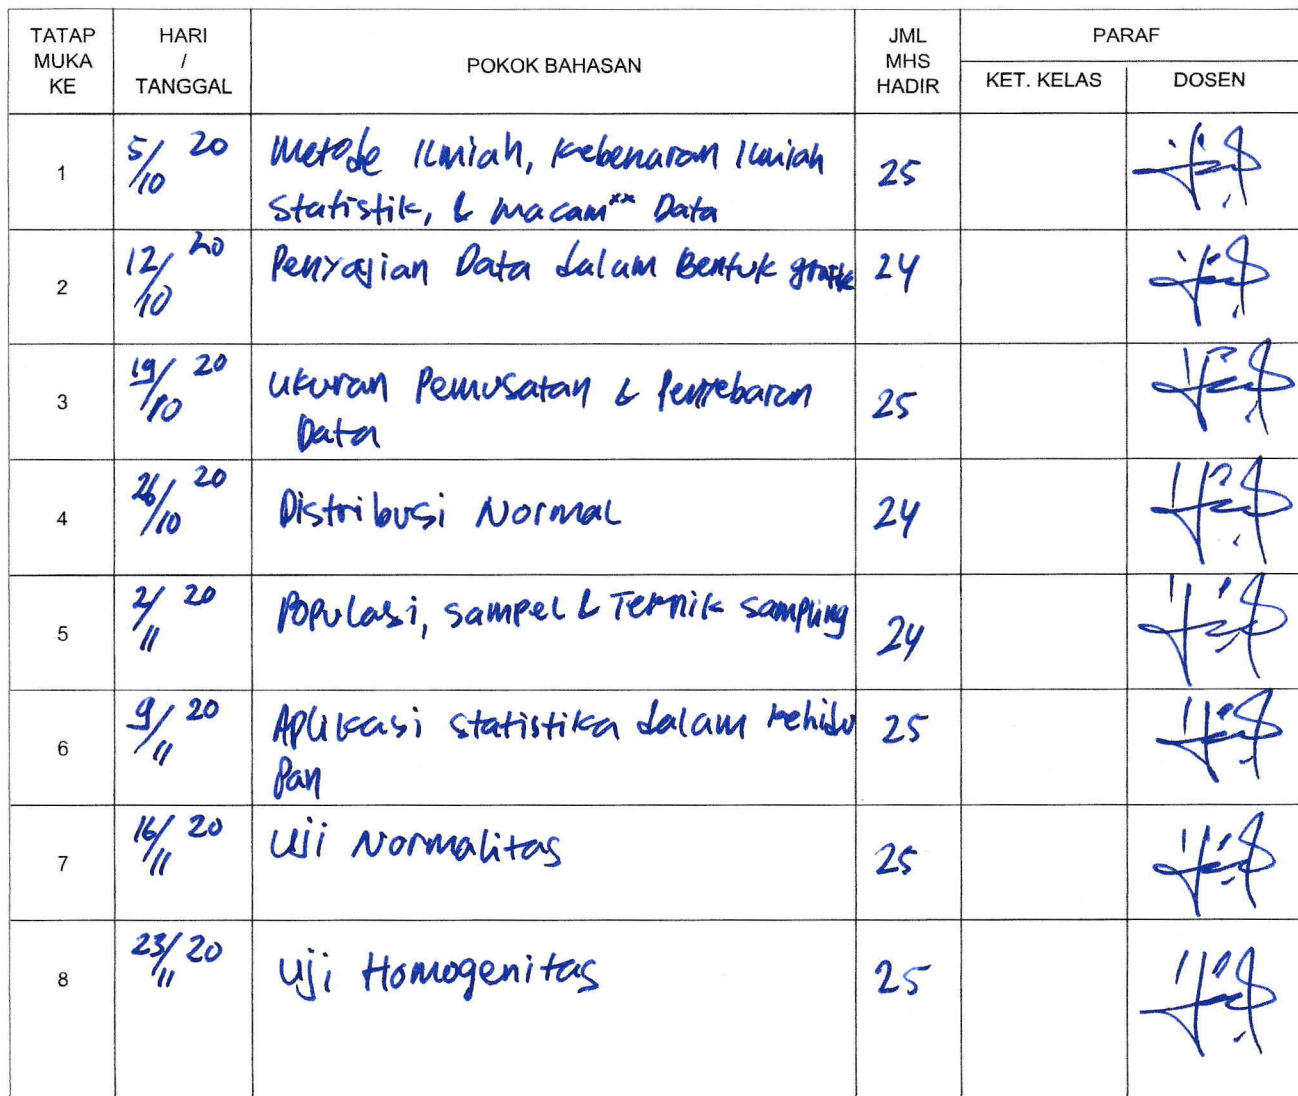 TATAP MUKA KE
HARI / TANGGAL
POKOK BAHASAN
JML MHS HADIR
PARAF
KET. KELAS
DOSEN
1
5/10 20
Metode Ilmiah, Kebenaran Ilmiah
Statistik, & macam** Data
25
2
12/10 20
Penyajian Data dalam Bentuk grafik
24
3
19/10 20
Ukuran Pemusatan & Penyebaran
Data
25
4
26/10 20
Distribusi Normal
24
5
2/11 20
Populasi, Sampel & Teknik Sampling
24
6
9/11 20
Aplikasi statistika dalam kehidu
Pan
25
7
16/11 20
Uji Normalitas
25
8
23/11 20
Uji Homogenitas
25